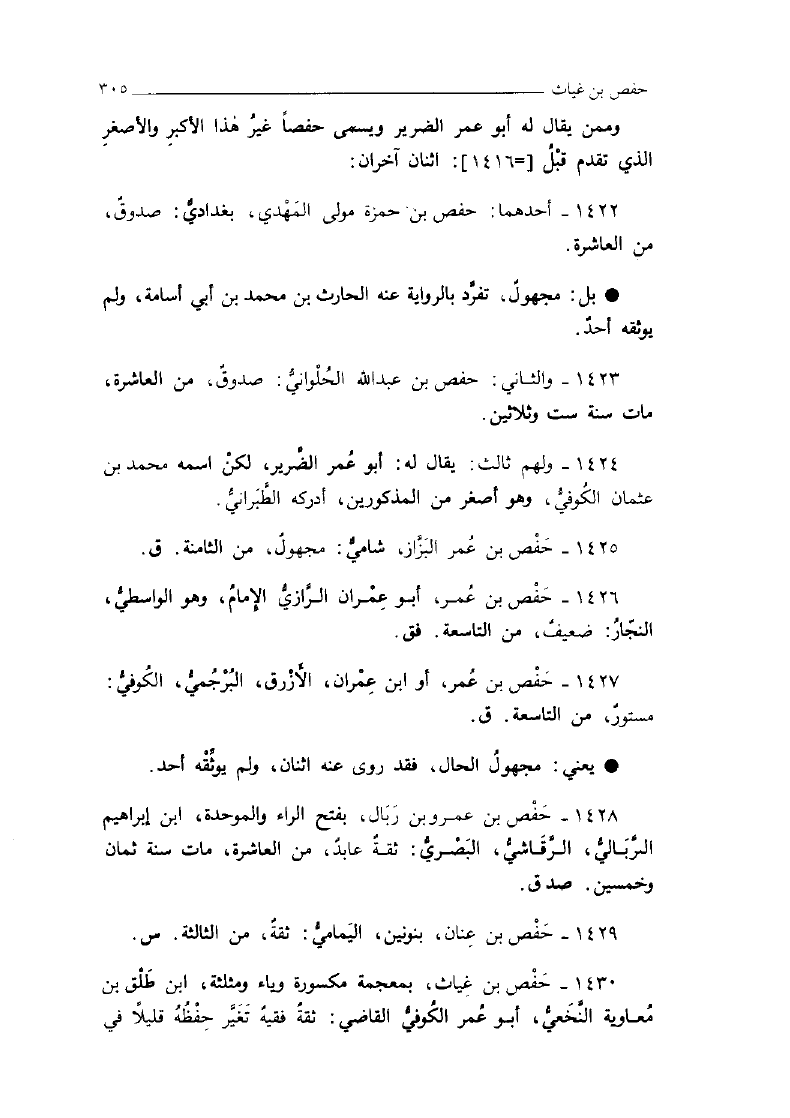 حفص بن غياث ــــــــــــــــــــ ٣٠٥
وممن يقال له أبو عمر الضرير ويسمى حفصاً غيرُ هٰذا الأكبرِ والأصغرِ
الذي تقدم قبْلُ [=١٤١٦]: اثنان آخران:
١٤٢٢ ـ أحدهما: حفص بن حمزة مولى المَهْدي، بغداديٌّ: صدوقٌ،
من العاشرة.
● بل: مجهولٌ، تفرَّد بالرواية عنه الحارث بن محمد بن أبي أسامة، ولم
يوثقه أحدٌ.
١٤٢٣ ـ والثاني: حفص بن عبدالله الحُلْوانيُّ: صدوقٌ، من العاشرة،
مات سنة ست وثلاثين.
١٤٢٤ ـ ولهم ثالث: يقال له: أبو عُمر الضَّرير، لكنْ اسمه محمد بن
عثمان الكُوفيُّ، وهو أصغر من المذكورين، أدركه الطَّبَرانيُّ.
١٤٢٥ ـ حَفْص بن عُمر البَزَّاز، شاميٌّ: مجهولٌ، من الثامنة. ق.
١٤٢٦ ـ حَفْص بن عُمر، أبو عِمْران الرَّازيُّ الإمامُ، وهو الواسطيُّ،
النجّارُ: ضعيفٌ، من التاسعة. فق.
١٤٢٧ ـ حَفْص بن عُمر، أو ابن عِمْران، الأَزْرق، البُرْجُميُّ، الكُوفيُّ:
مستورٌ، من التاسعة. ق.
● يعني: مجهولُ الحال، فقد روى عنه اثنان، ولم يوثِّقْه أحد.
١٤٢٨ ـ حَفْص بن عمرو بن رَبَال، بفتح الراء والموحدة، ابن إبراهيم
الرَّبَاليُّ، الرَّقاشيُّ، البَصْريُّ: ثقةٌ عابدٌ، من العاشرة، مات سنة ثمان
وخمسين. صد ق.
١٤٢٩ ـ حَفْص بن عِنان، بنونين، اليَماميُّ: ثقةٌ، من الثالثة. س.
١٤٣٠ ـ حَفْص بن غِياث، بمعجمة مكسورة وياء ومثلثة، ابن طَلْق بن
مُعاوية النَّخَعيُّ، أبو عُمر الكُوفيُّ القاضي: ثقةٌ فقيهٌ تَغَيَّر حِفْظُهُ قليلًا في